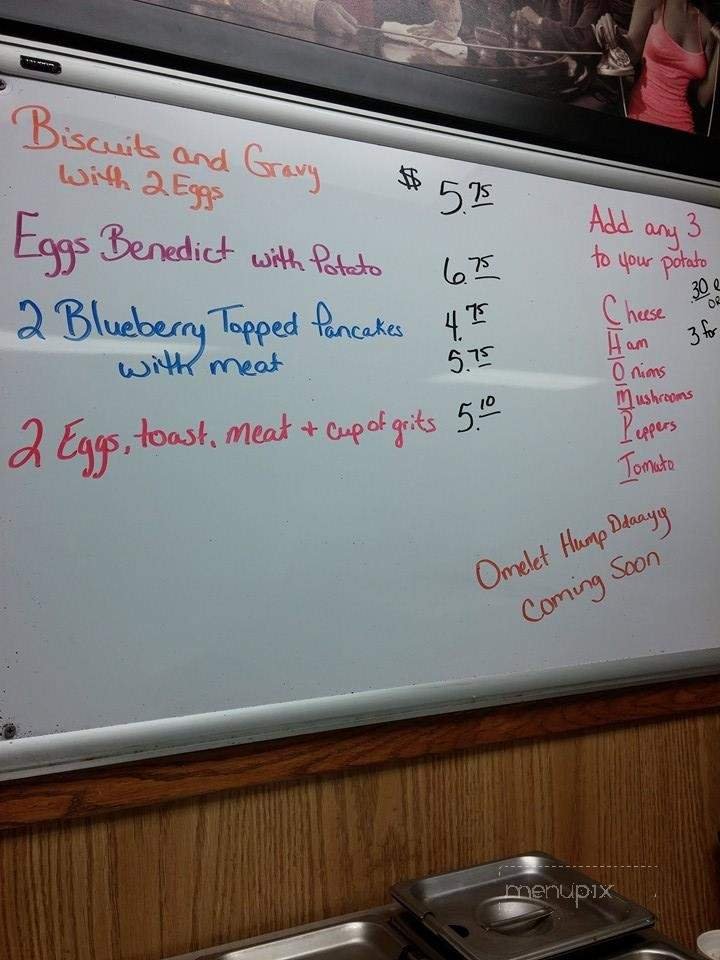 Biscuits and Gravy
with 2 Eggs
$ 5.75
Eggs Benedict with Potato 6.75
2 Blueberry Topped Pancakes 4.75
with meat 5.75
2 Eggs, toast, meat + cup of grits 5.10
Add any 3
to your potato
.30
Cheese
3 for
Ham
Onions
Mushrooms
Peppers
Tomato
Omelet Hump Ddaayy
Coming Soon
menupix